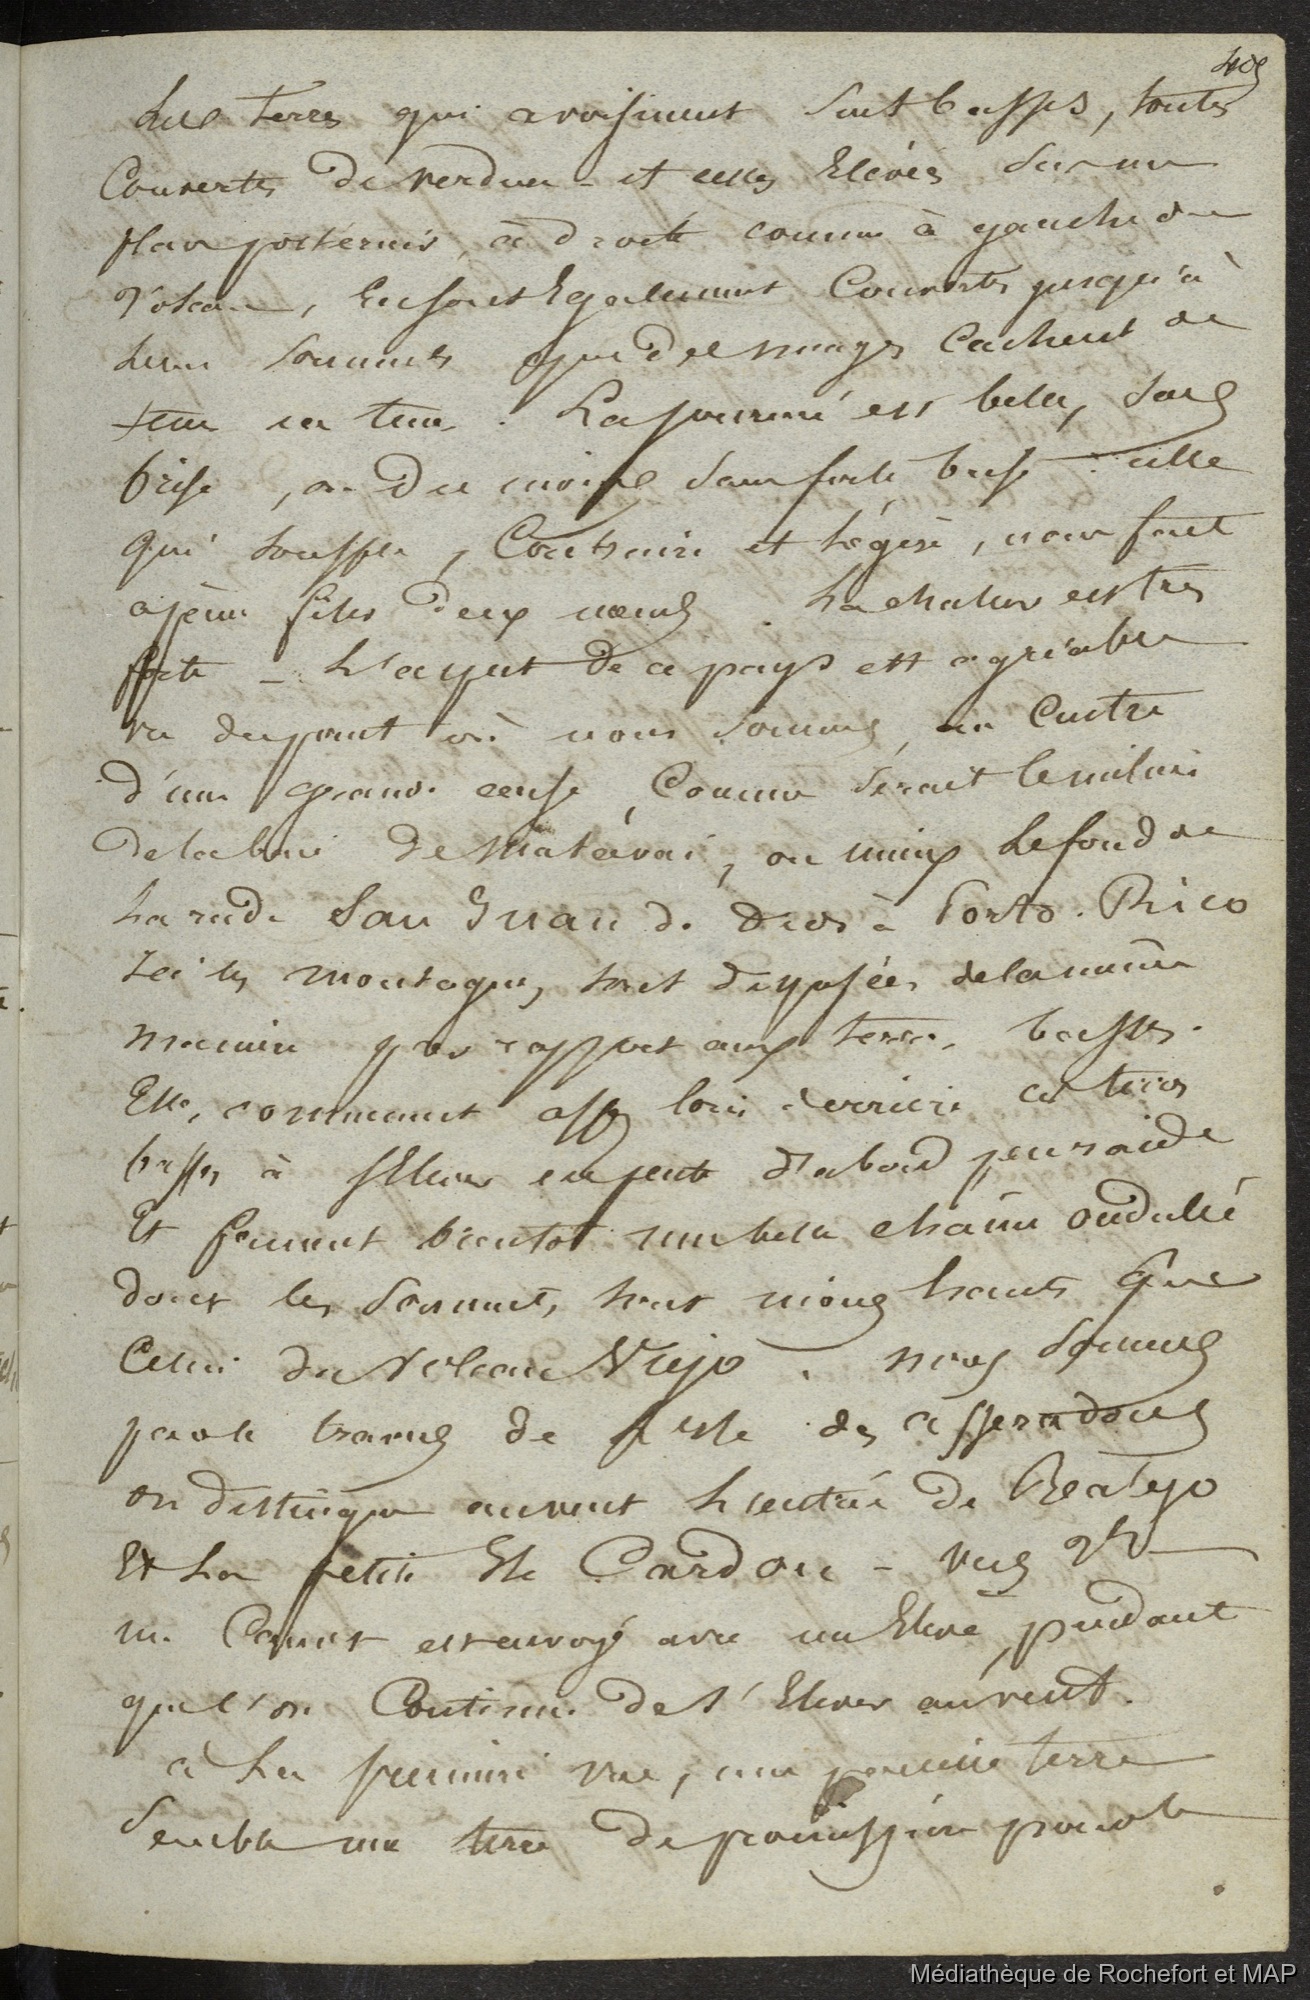 409
Les terres qui avoisinent sont basses, toutes
Couvertes de verdure - et celles Elevées sur un
plan postérieur, à droite comme à gauche du
Volcan, En sont Egalement Couvertes jusqu'à
leurs sommets que des nuages Cachent de
tems en tems. La journée est belle, sans
brise, ou du moins sans forte brise : celle
qui souffle, Contraire et légère, nous fait
à peine filer deux nœuds. La chaleur est très
forte - L'aspect de ce pays est agréable
vu du point où nous sommes, au Centre
d'une grande anse, Comme serait le milieu
de la baie de Matavai, ou mieux le fond de
la rade San Juan de Dios à Porto. Rico
Ici les montagnes sont disposées de la même
manière par rapport aux terres basses.
Elles commencent assez loin derrière ces terres
basses à s'Elever en pente d'abord peu raide
Et forment bientôt une belle chaîne ondulée
dont les sommets sont moins hauts que
Celui du Volcan Viejo. nous sommes
par le travers de l'Isle des asseradores
on distingue au vent L'entrée de Realejo
Et La petite Ile Cardon - vers 2h
M. est envoyé avec un Eleve, pendant
que l'on Continue de s'Elever au vent.
à La première vue, une pareille terre
Semble une terre de promission pour le
Médiathèque de Rochefort et MAP